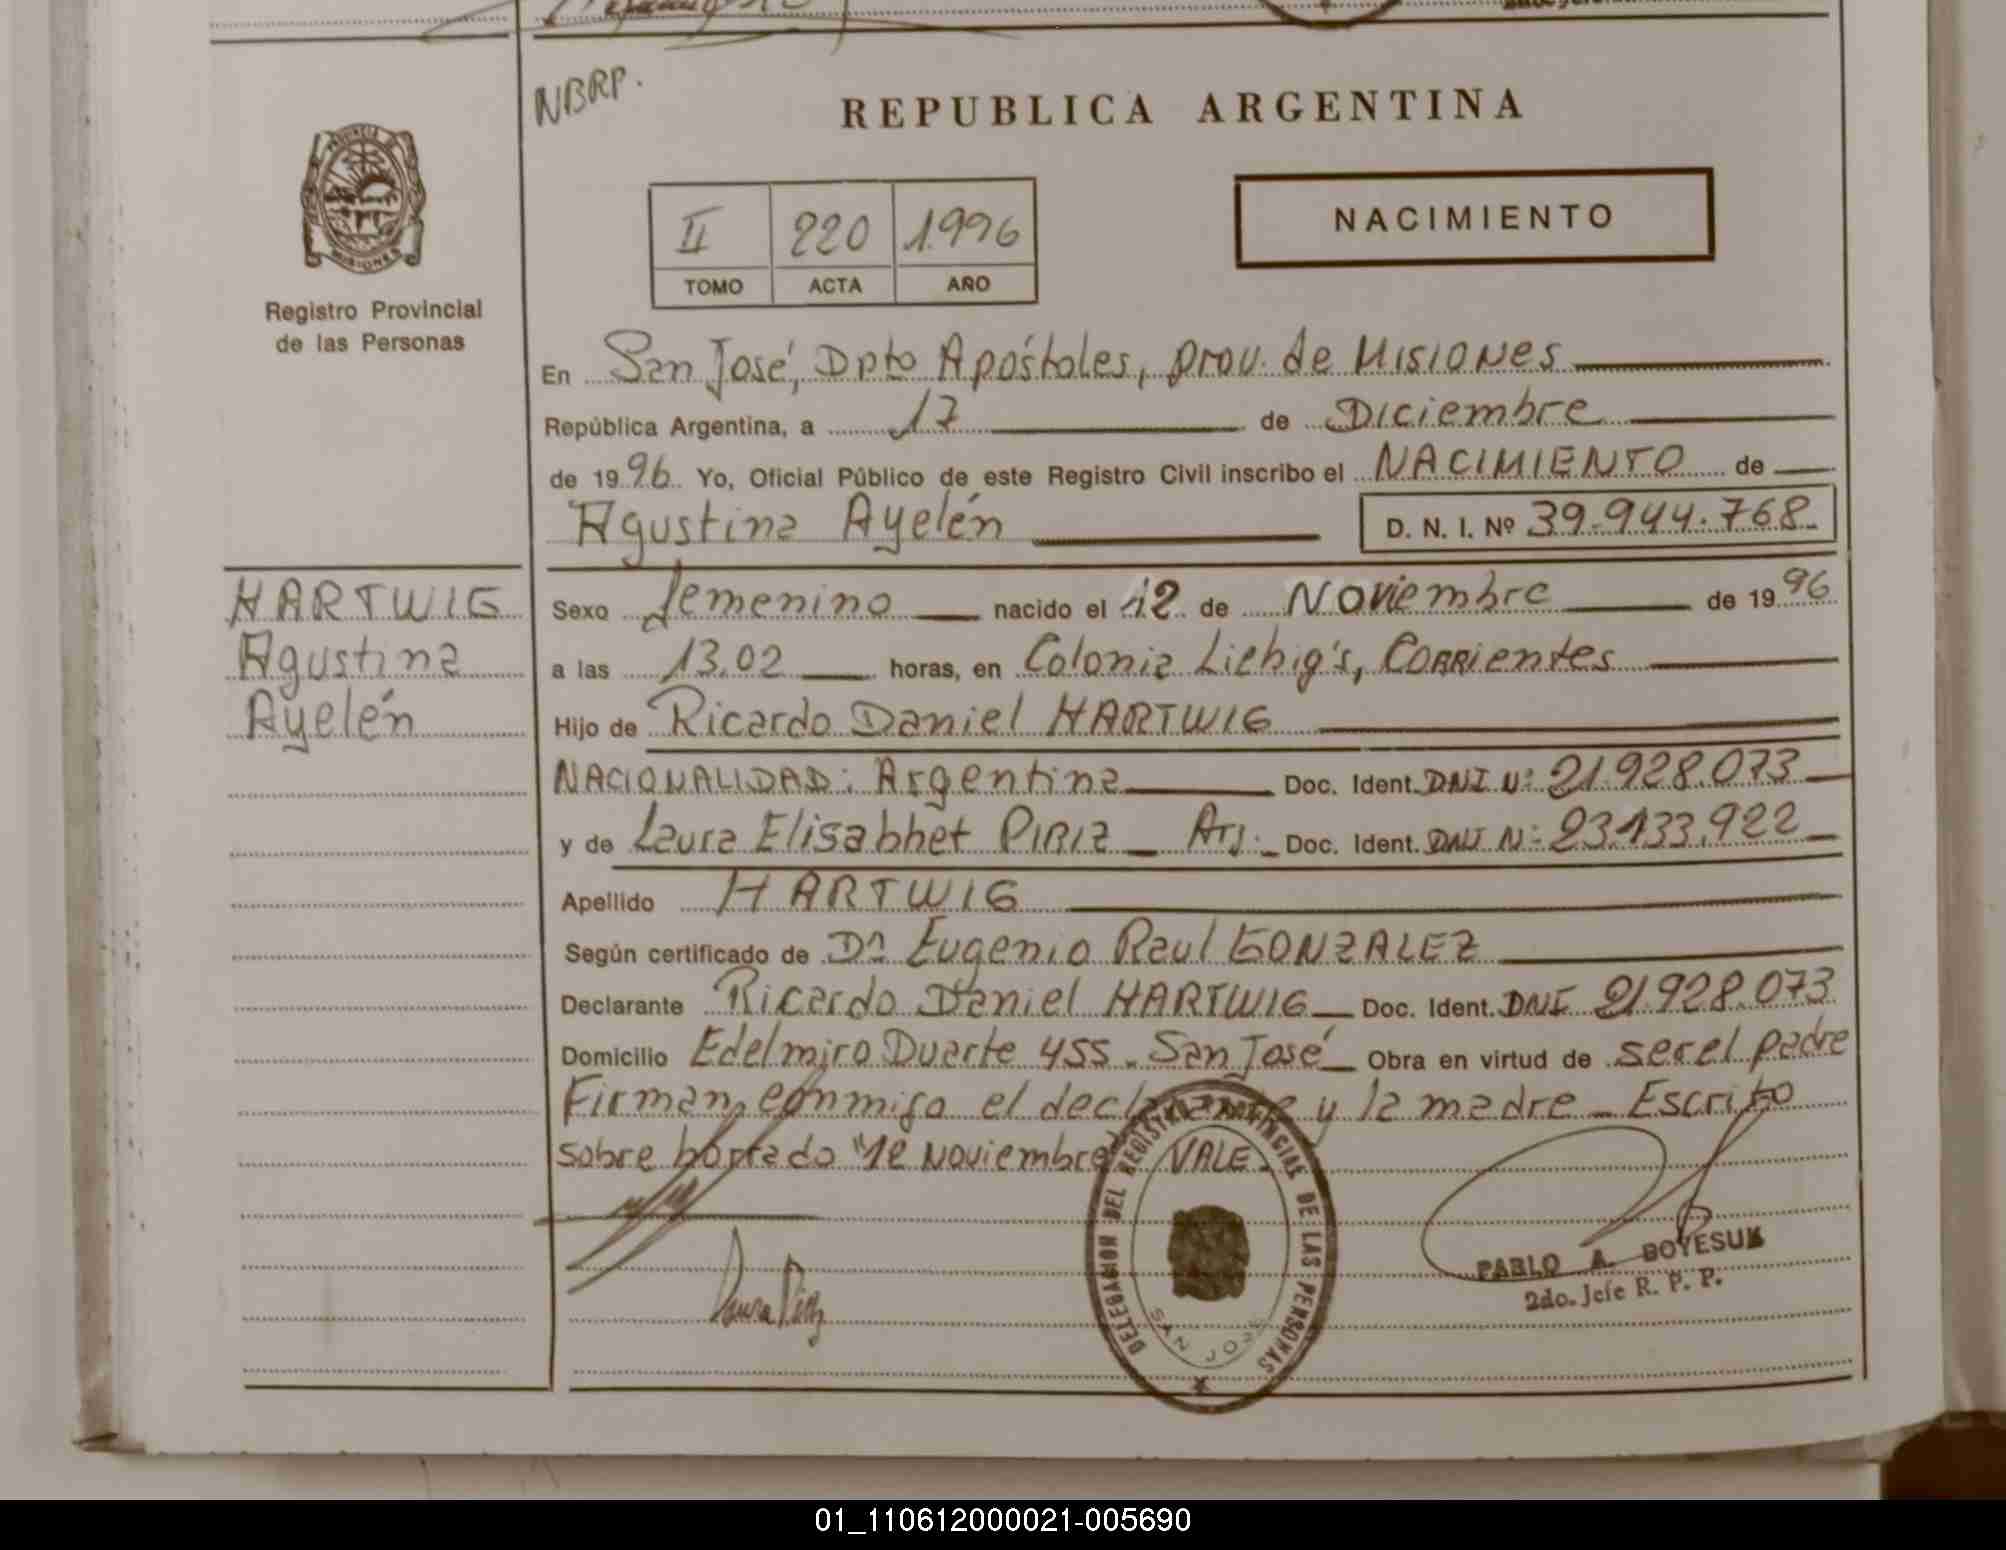 NBRP.
REPUBLICA ARGENTINA
PROVINCIA DE MISIONES
II 220 1996
TOMO ACTA AÑO
NACIMIENTO
Registro Provincial
de las Personas
En San José, Dpto Apóstoles, prov. de Misiones
República Argentina, a 17 de Diciembre
de 1996 Yo, Oficial Público de este Registro Civil inscribo el NACIMIENTO de
Agustina Ayelén D. N. I. Nº 39.944.768
HARTWIG
Agustina
Ayelén
Sexo femenino nacido el 12 de Noviembre de 1996
a las 13,02 horas, en Colonia Liebig's, Corrientes
Hijo de Ricardo Daniel HARTWIG
NACIONALIDAD: Argentina Doc. Ident. DNI Nº 21.928.073
y de Laura Elisabhet PIRIZ Arg. Doc. Ident. DNI Nº 23.133.922
Apellido HARTWIG
Según certificado de Dn Eugenio Raul GONZALEZ
Declarante Ricardo Daniel HARTWIG Doc. Ident. DNI 21928.073
Domicilio Edelmiro Duarte 455. San José Obra en virtud de ser el padre
Firman conmigo el declarante y la madre Escrito
sobre borrado "12 Noviembre" VALE.
Laura Piriz
DELEGACION DEL REGISTRO PROVINCIAL DE LAS PERSONAS
SAN JOSE
PABLO A. BOYESUK
2do. Jefe R. P. P.
01_110612000021-005690